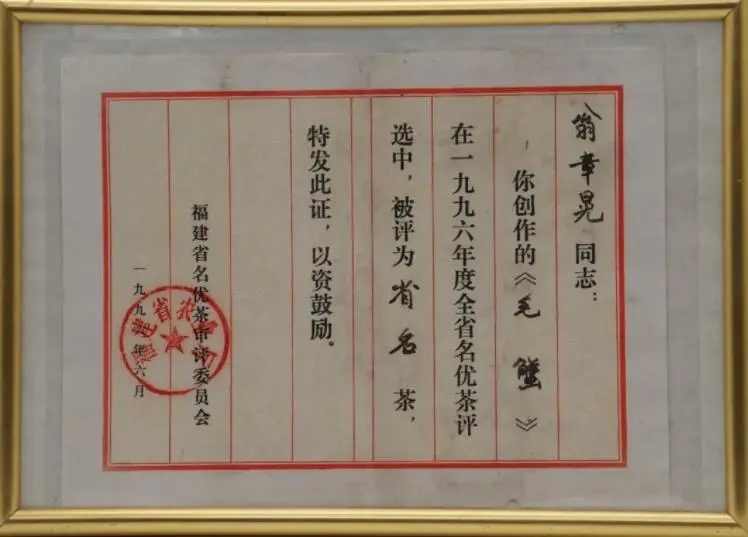 翁章晃 同志：
你创作的《毛蟹》
在一九九六年度全省名优茶评
选中，被评为省名茶，
特发此证，以资鼓励。
福建省名优茶审评委员会
一九九六年六月
福建省农业